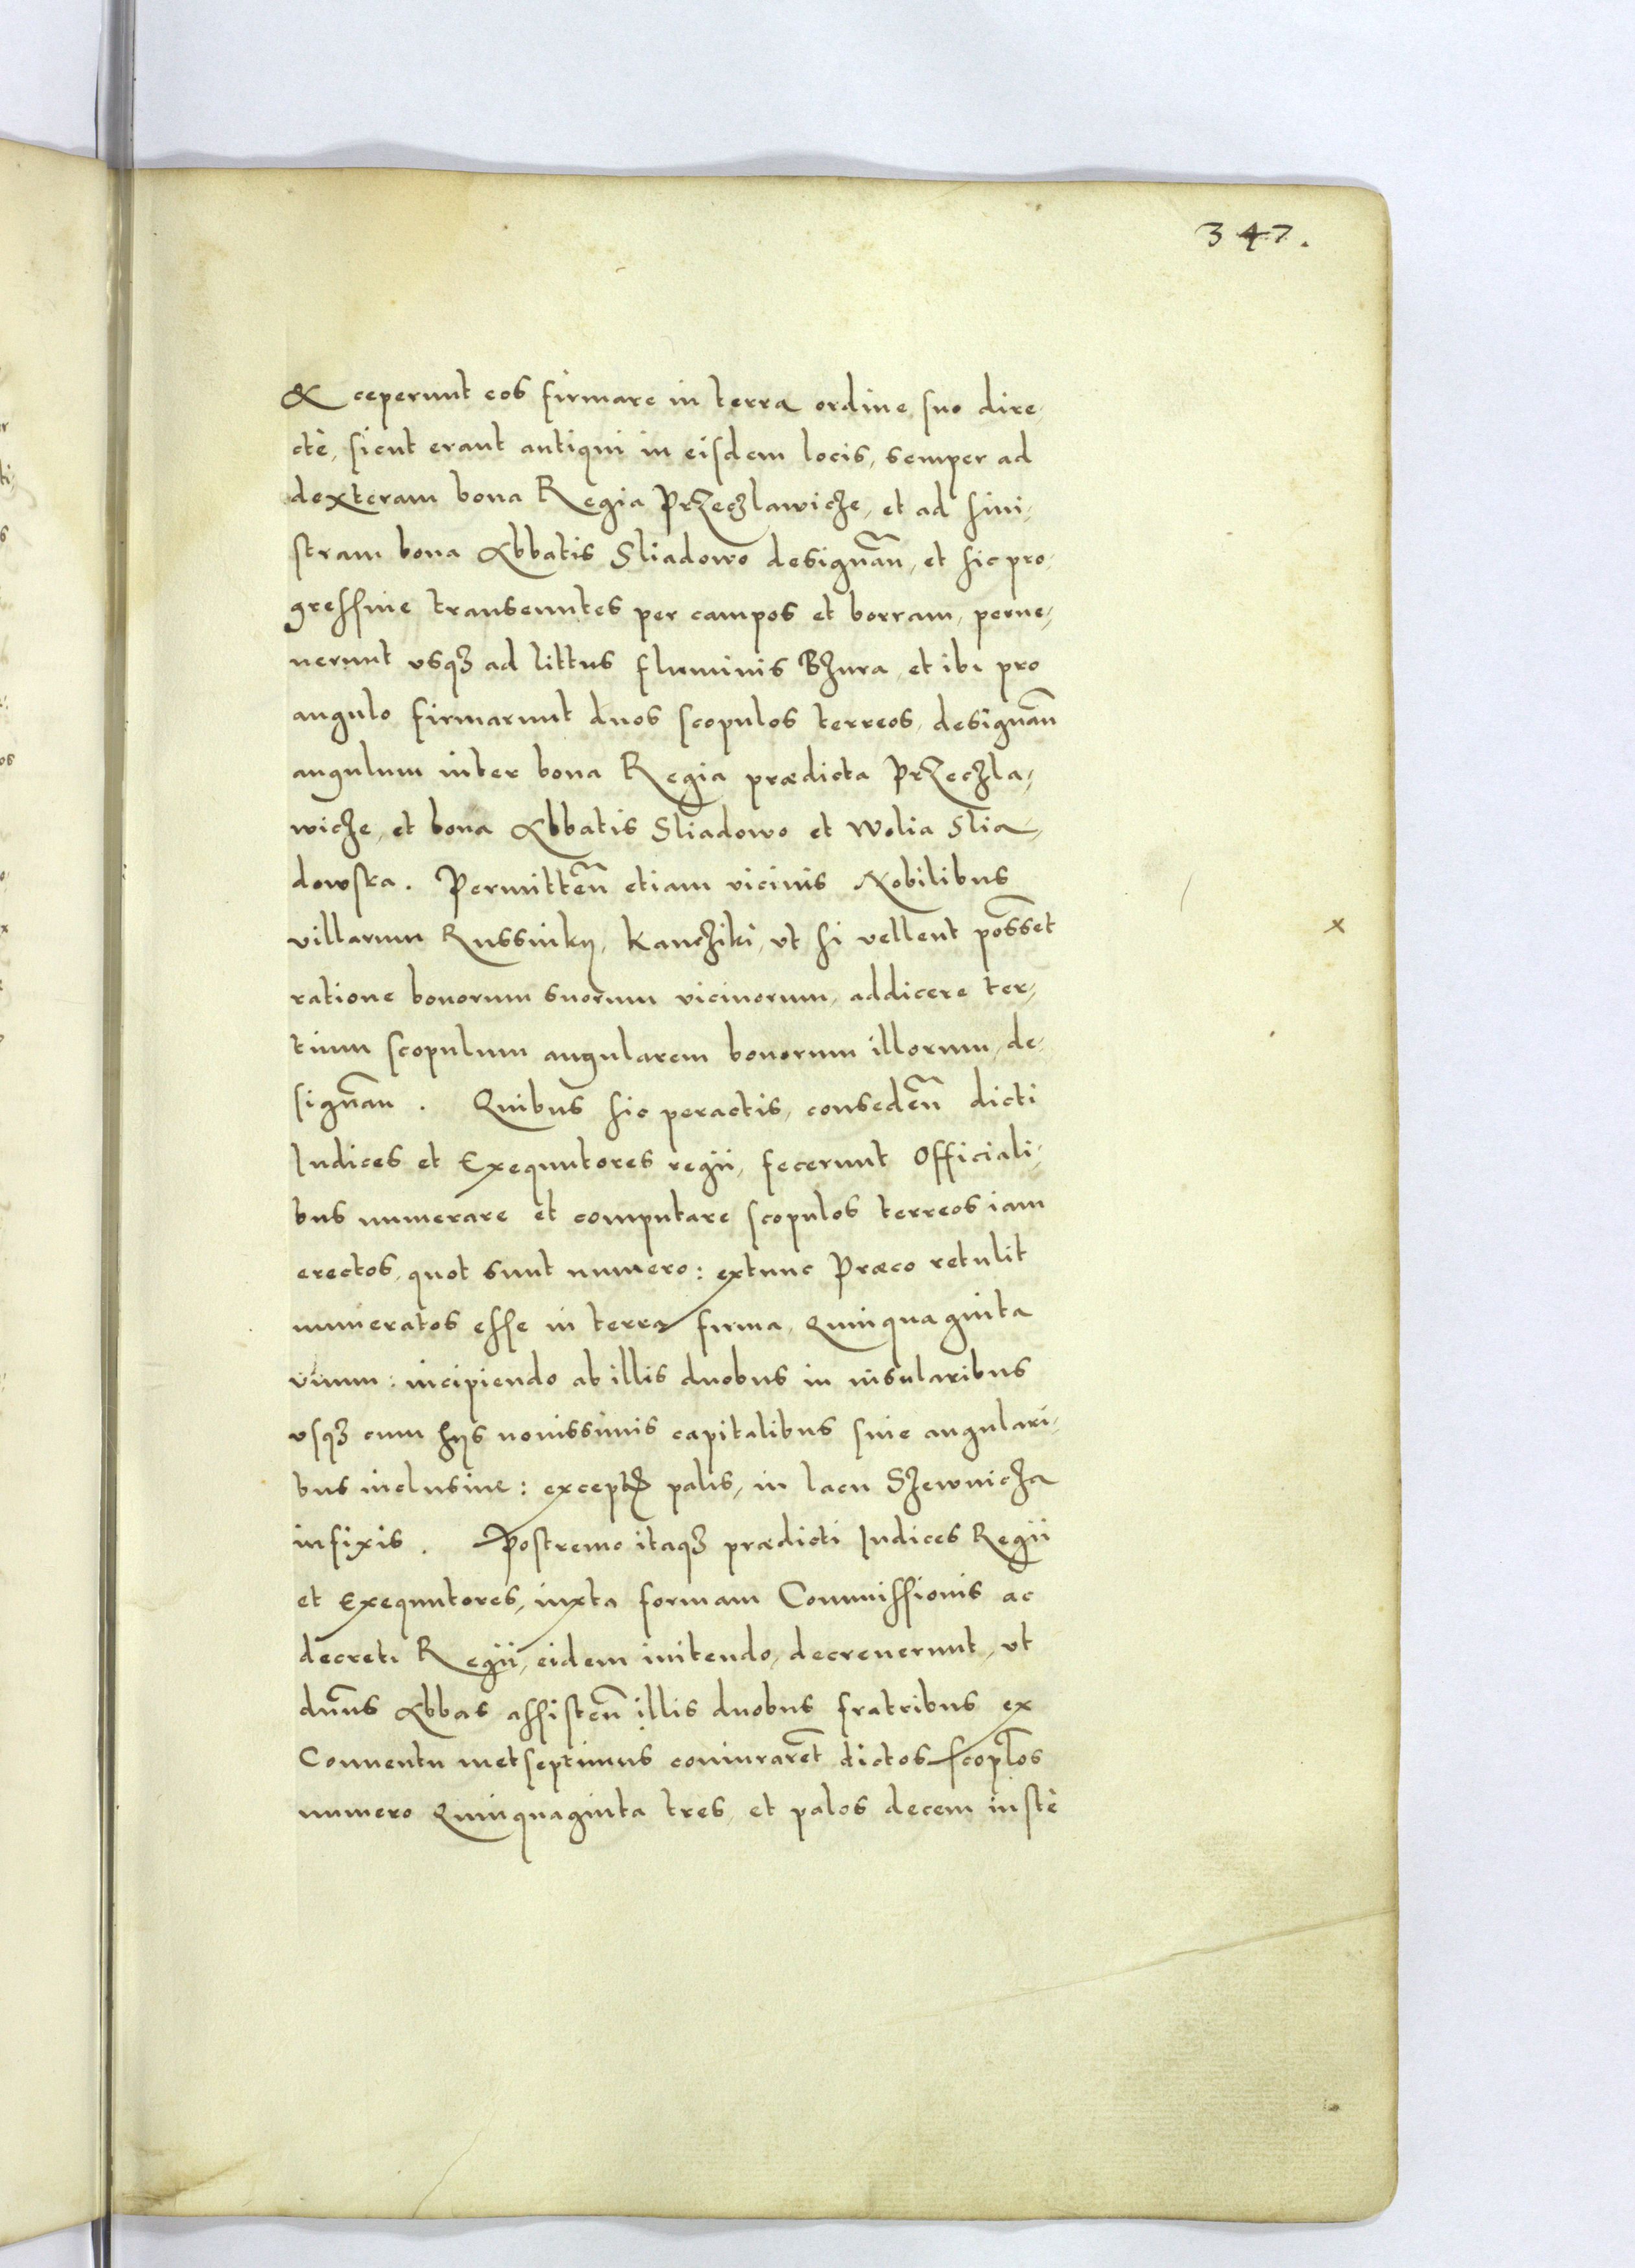 347.
& ceperunt eos firmare in terra ordine suo dire,
ctè, sicut erant antiqui in eisdem locis, semper ad
dexteram bona Regia Przeczlawicze, et ad sini,
stram bona Abbatis Sliadowo designan̄, et sic pro,
gressiue transeuntes per campos et borram, perue,
nerunt vsqꝫ ad littus fluminis Bzura, et ibi pro
angulo firmarunt duos scopulos terreos, designan̄
angulum inter bona Regia prædicta Przeczla,
wicze, et bona Abbatis Sliadowo et Wolia Slia,
dowska. Permitten̄ etiam vicinis Nobilibus
villarum Russinky, Kancziki, vt si vellent possēt
ratione bonorum suorum vicinorum, addicere ter,
tium scopulum angularem bonorum illorum, de,
signan̄. Quibus sic peractis, conseden̄ dicti
Iudices et Exequutores regii, fecerunt Officiali,
bus numerare et computare scopulos terreos iam
erectos, quot sunt numero: extunc Præco retulit
numeratos esse in terra firma, Quinquaginta
vnum: incipiendo ab illis duobus in insularibus
vsqꝫ cum hijs nouissimis capitalibus siue angulari,
bus inclusiue: except palis, in lacu Szewnicza
infixis. Postremo itaqꝫ prædicti Iudices Regii
et Exequutores, iuxta formam Commissionis ac
decreti Regii, eidem initendo, decreuerunt, vt
dn̄us Abbas assisten̄ illis duobus fratribus ex
Conuentu metseptimus coniurarēt dictos scoplos
numero Quinquaginta tres, et palos decem iustè
x